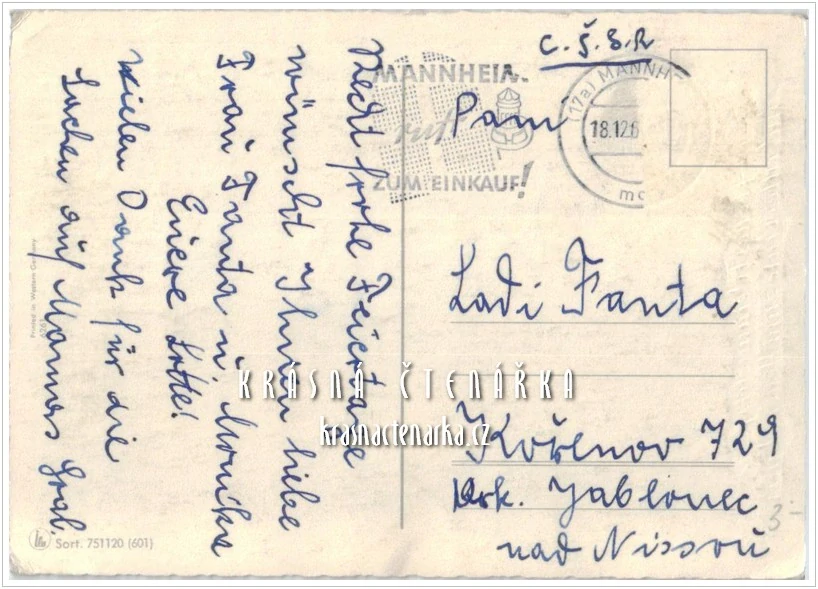 Recht frohe Feiertage
wünscht Ihnen liebe
Frau Fanta u. Monika
Eure Lotte!
Vielen Dank für die
Sachen auf Mamas Grab.
C.Š.S.R
MANNHEIM
ruft
ZUM EINKAUF!
(17a) MANNH
18.12.6
Pani
Ladi Fanta
Kořenov 729
Okr. Jablonec
nad Nissou
3-
KRÁSNÁ ČTENÁŘKA
krasnactenarka.cz
Printed in Western Germany
Sort. 751120 (601)